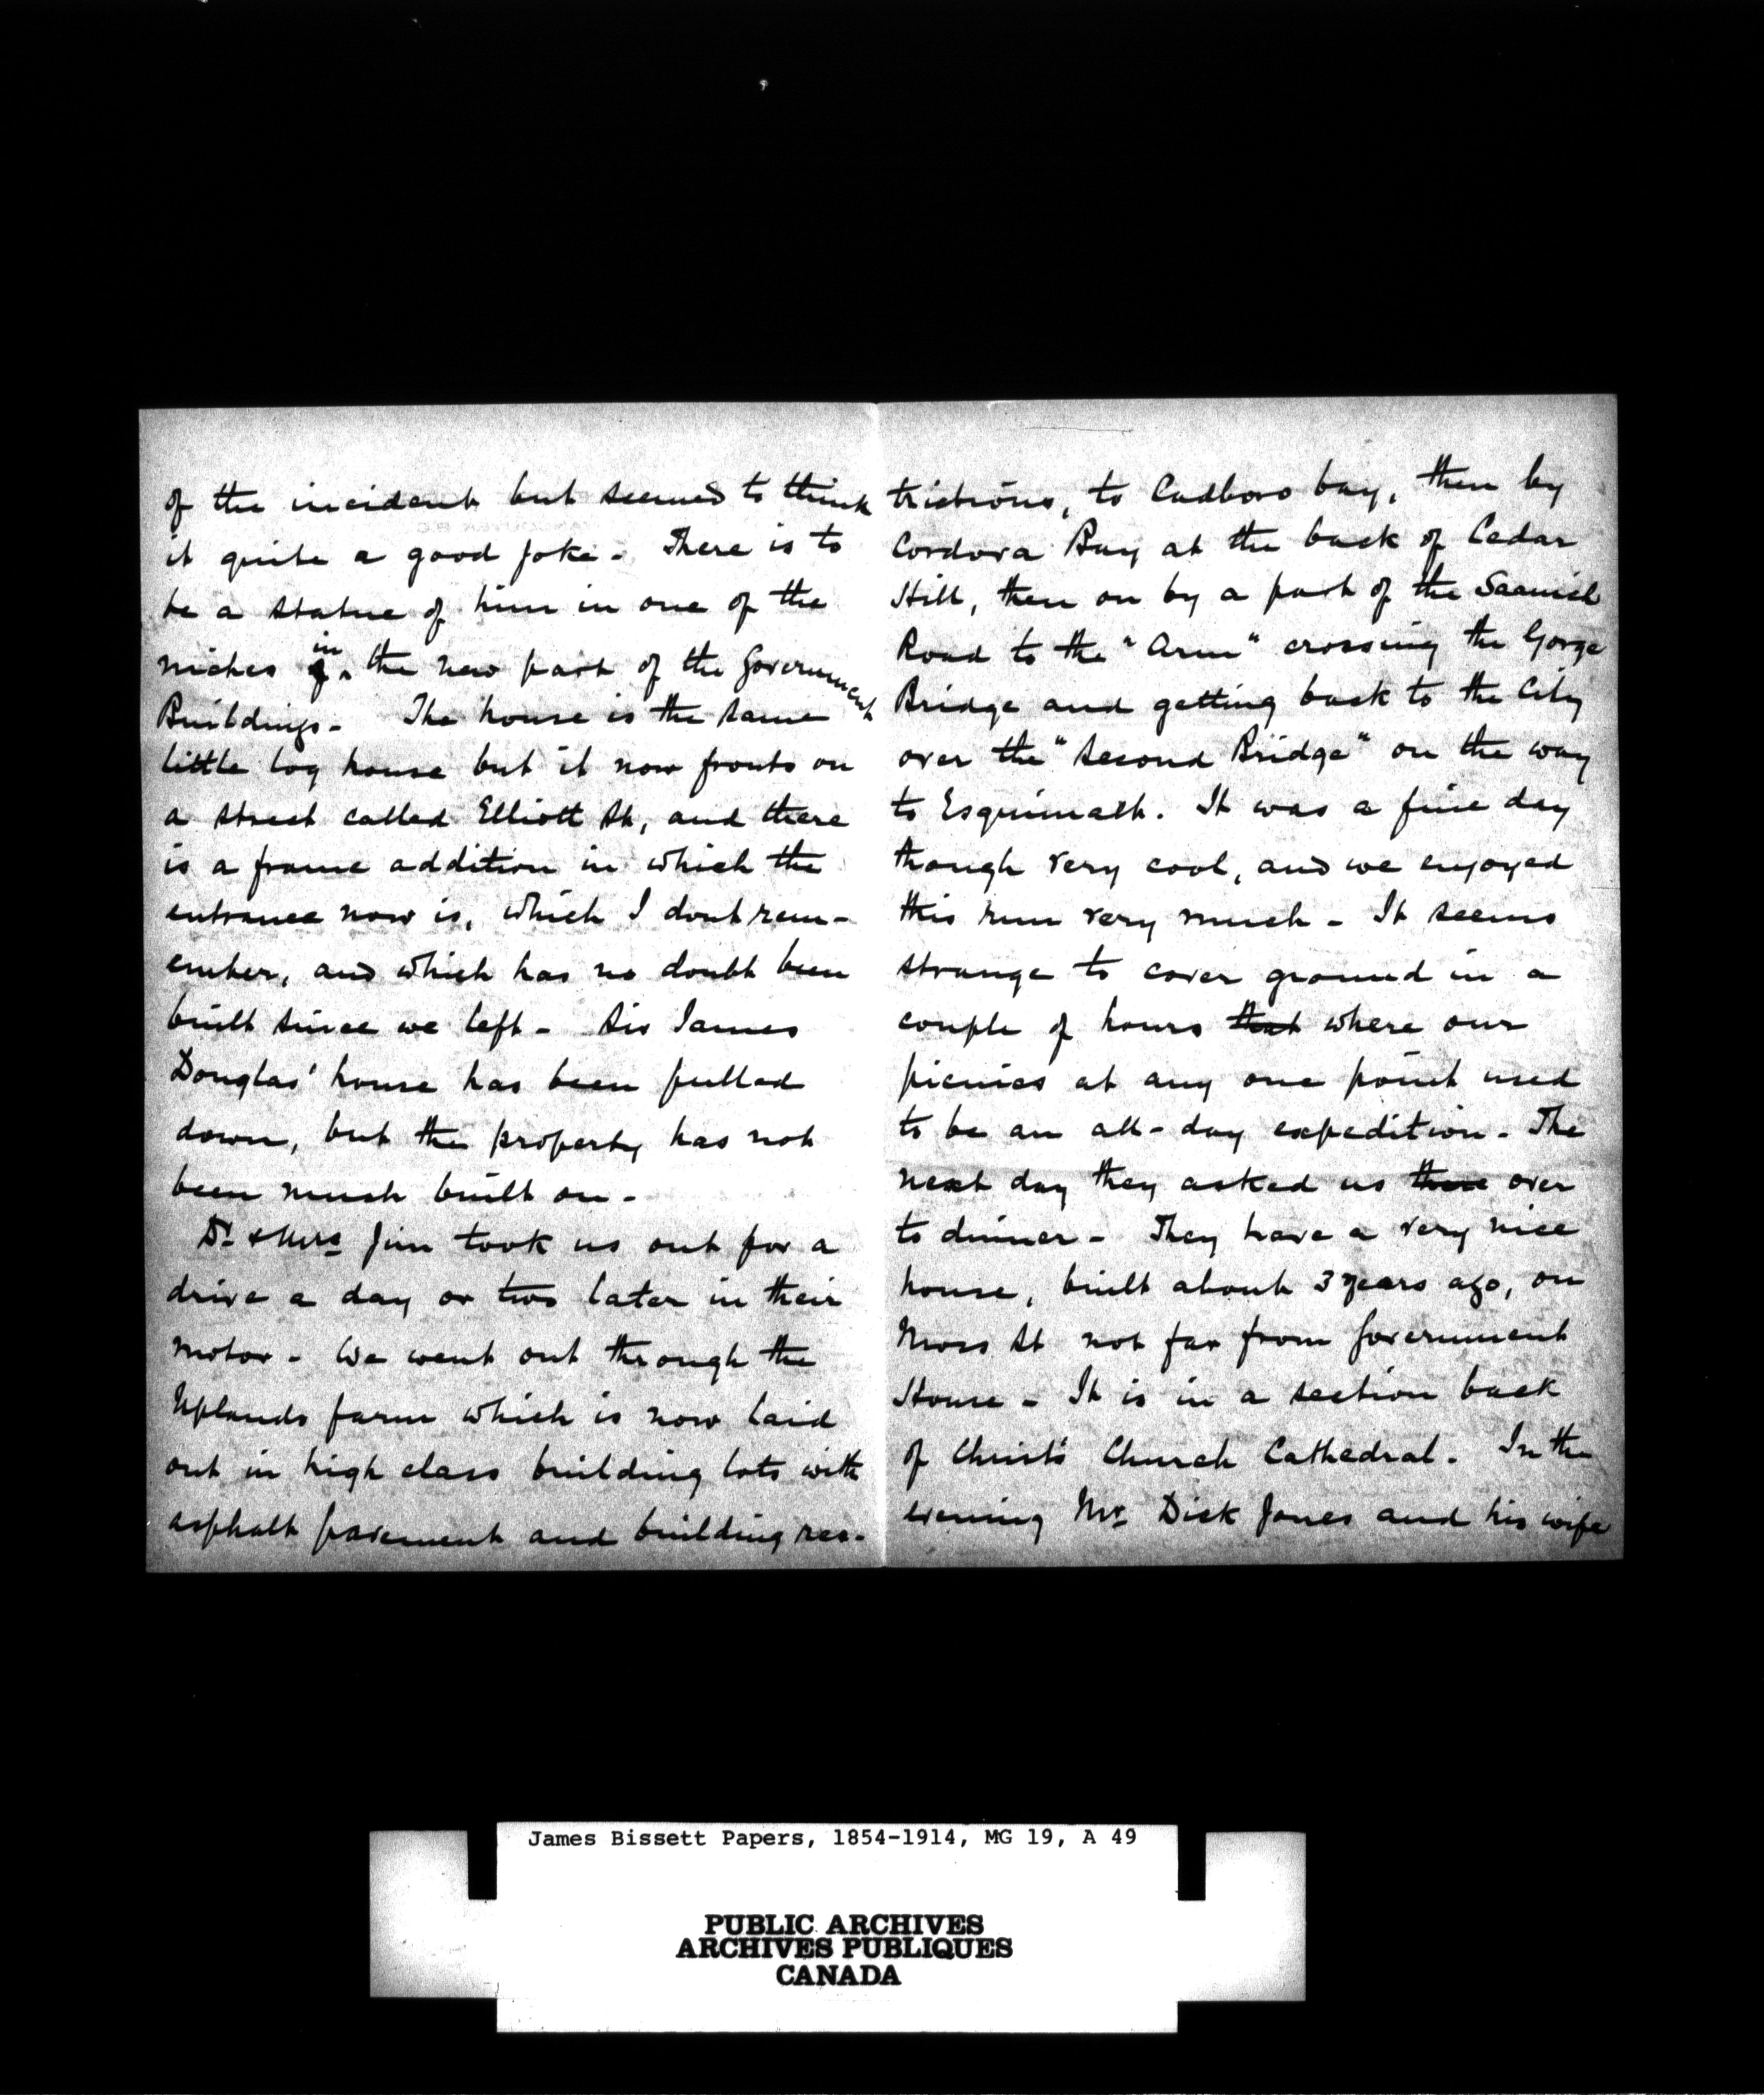 of the incident but seemed to think
it quite a good joke - There is to
be a statue of him in one of the
niches in the new part of the Government
Buildings - The house is the same
little log house but it now fronts on
a street called Elliott St, and there
is a frame addition in which the
entrance now is, which I dont rem-
ember, and which has no doubt been
built since we left - Sir James
Douglas' house has been pulled
down, but the property has not
been much built on -
Dr & Mrs Jim took us out for a
drive a day or two later in their
motor - We went out through the
Uplands farm which is now laid
out in high class building lots with
asphalt pavement and building res-
trictions, to Cadboro bay, then by
Cordova Bay at the back of Cedar
Hill, then on by a part of the Saanich
Road to the "Arm" crossing the Gorge
Bridge and getting back to the City
over the "Second Bridge" on the way
to Esquimalt. It was a fine day
though very cool, and we enjoyed
this run very much - It seems
strange to cover ground in a
couple of hours that where our
picnics at any one point used
to be an all-day expedition - The
next day they asked us there over
to dinner - They have a very nice
house, built about 3 years ago, on
Moss St not far from Government
House - It is in a section back
of Christ's Church Cathedral. In the
evening Mr. Dick Jones and his wife
James Bissett Papers, 1854-1914, MG 19, A 49
PUBLIC ARCHIVES
ARCHIVES PUBLIQUES
CANADA